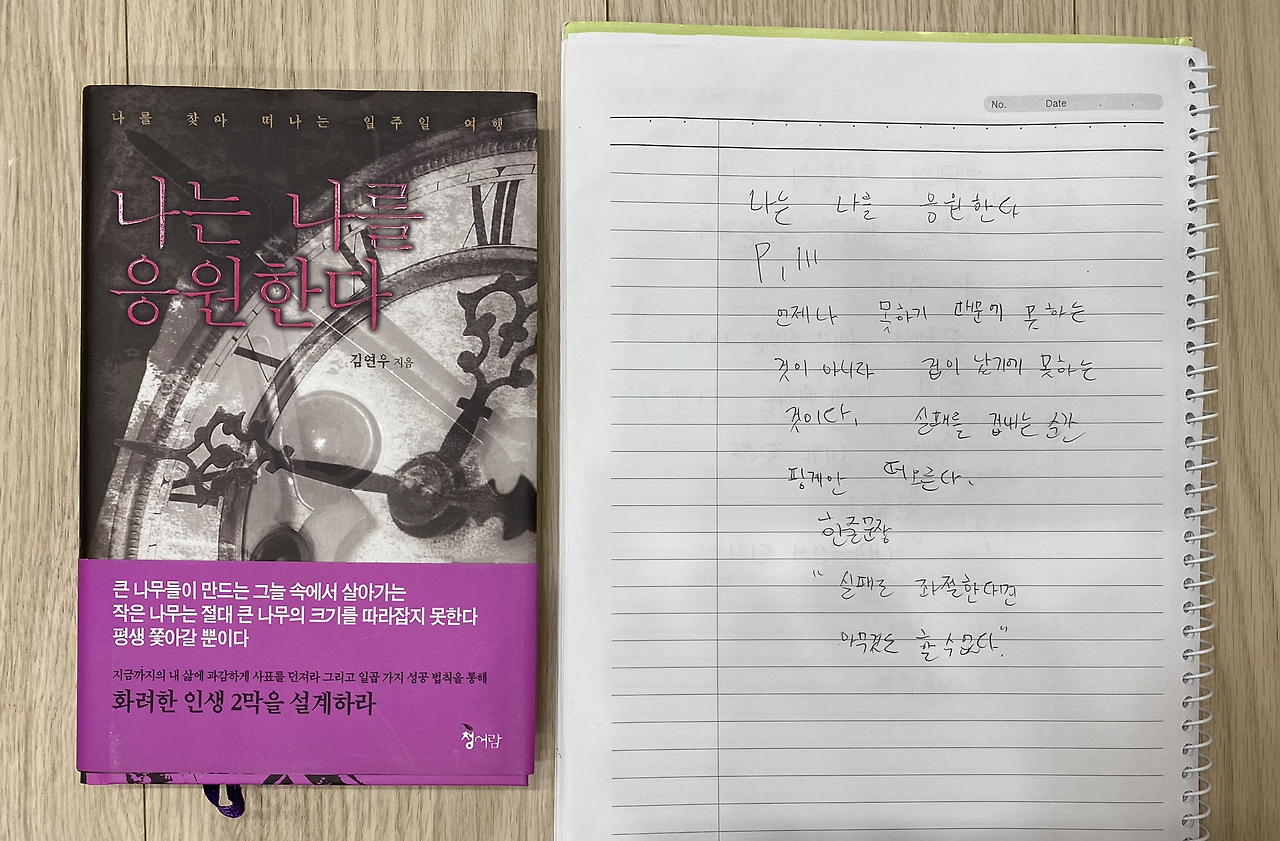 나를 찾아 떠나는 일주일 여행
나는 나를
응원한다
김연우 지음
큰 나무들이 만드는 그늘 속에서 살아가는
작은 나무는 절대 큰 나무의 크기를 따라잡지 못한다
평생 쫓아갈 뿐이다
지금까지의 내 삶에 과감하게 사표를 던져라 그리고 일곱 가지 성공 법칙을 통해
화려한 인생 2막을 설계하라
청어람
No. Date . .
나는 나를 응원한다
P. 111
언제나 못하기 때문에 못하는
것이 아니라 겁이 났기에 못하는
것이다. 실패를 겁내는 순간
핑계만 떠오른다.
한글문장
"실패로 좌절한다면
아무것도 할 수 없다."